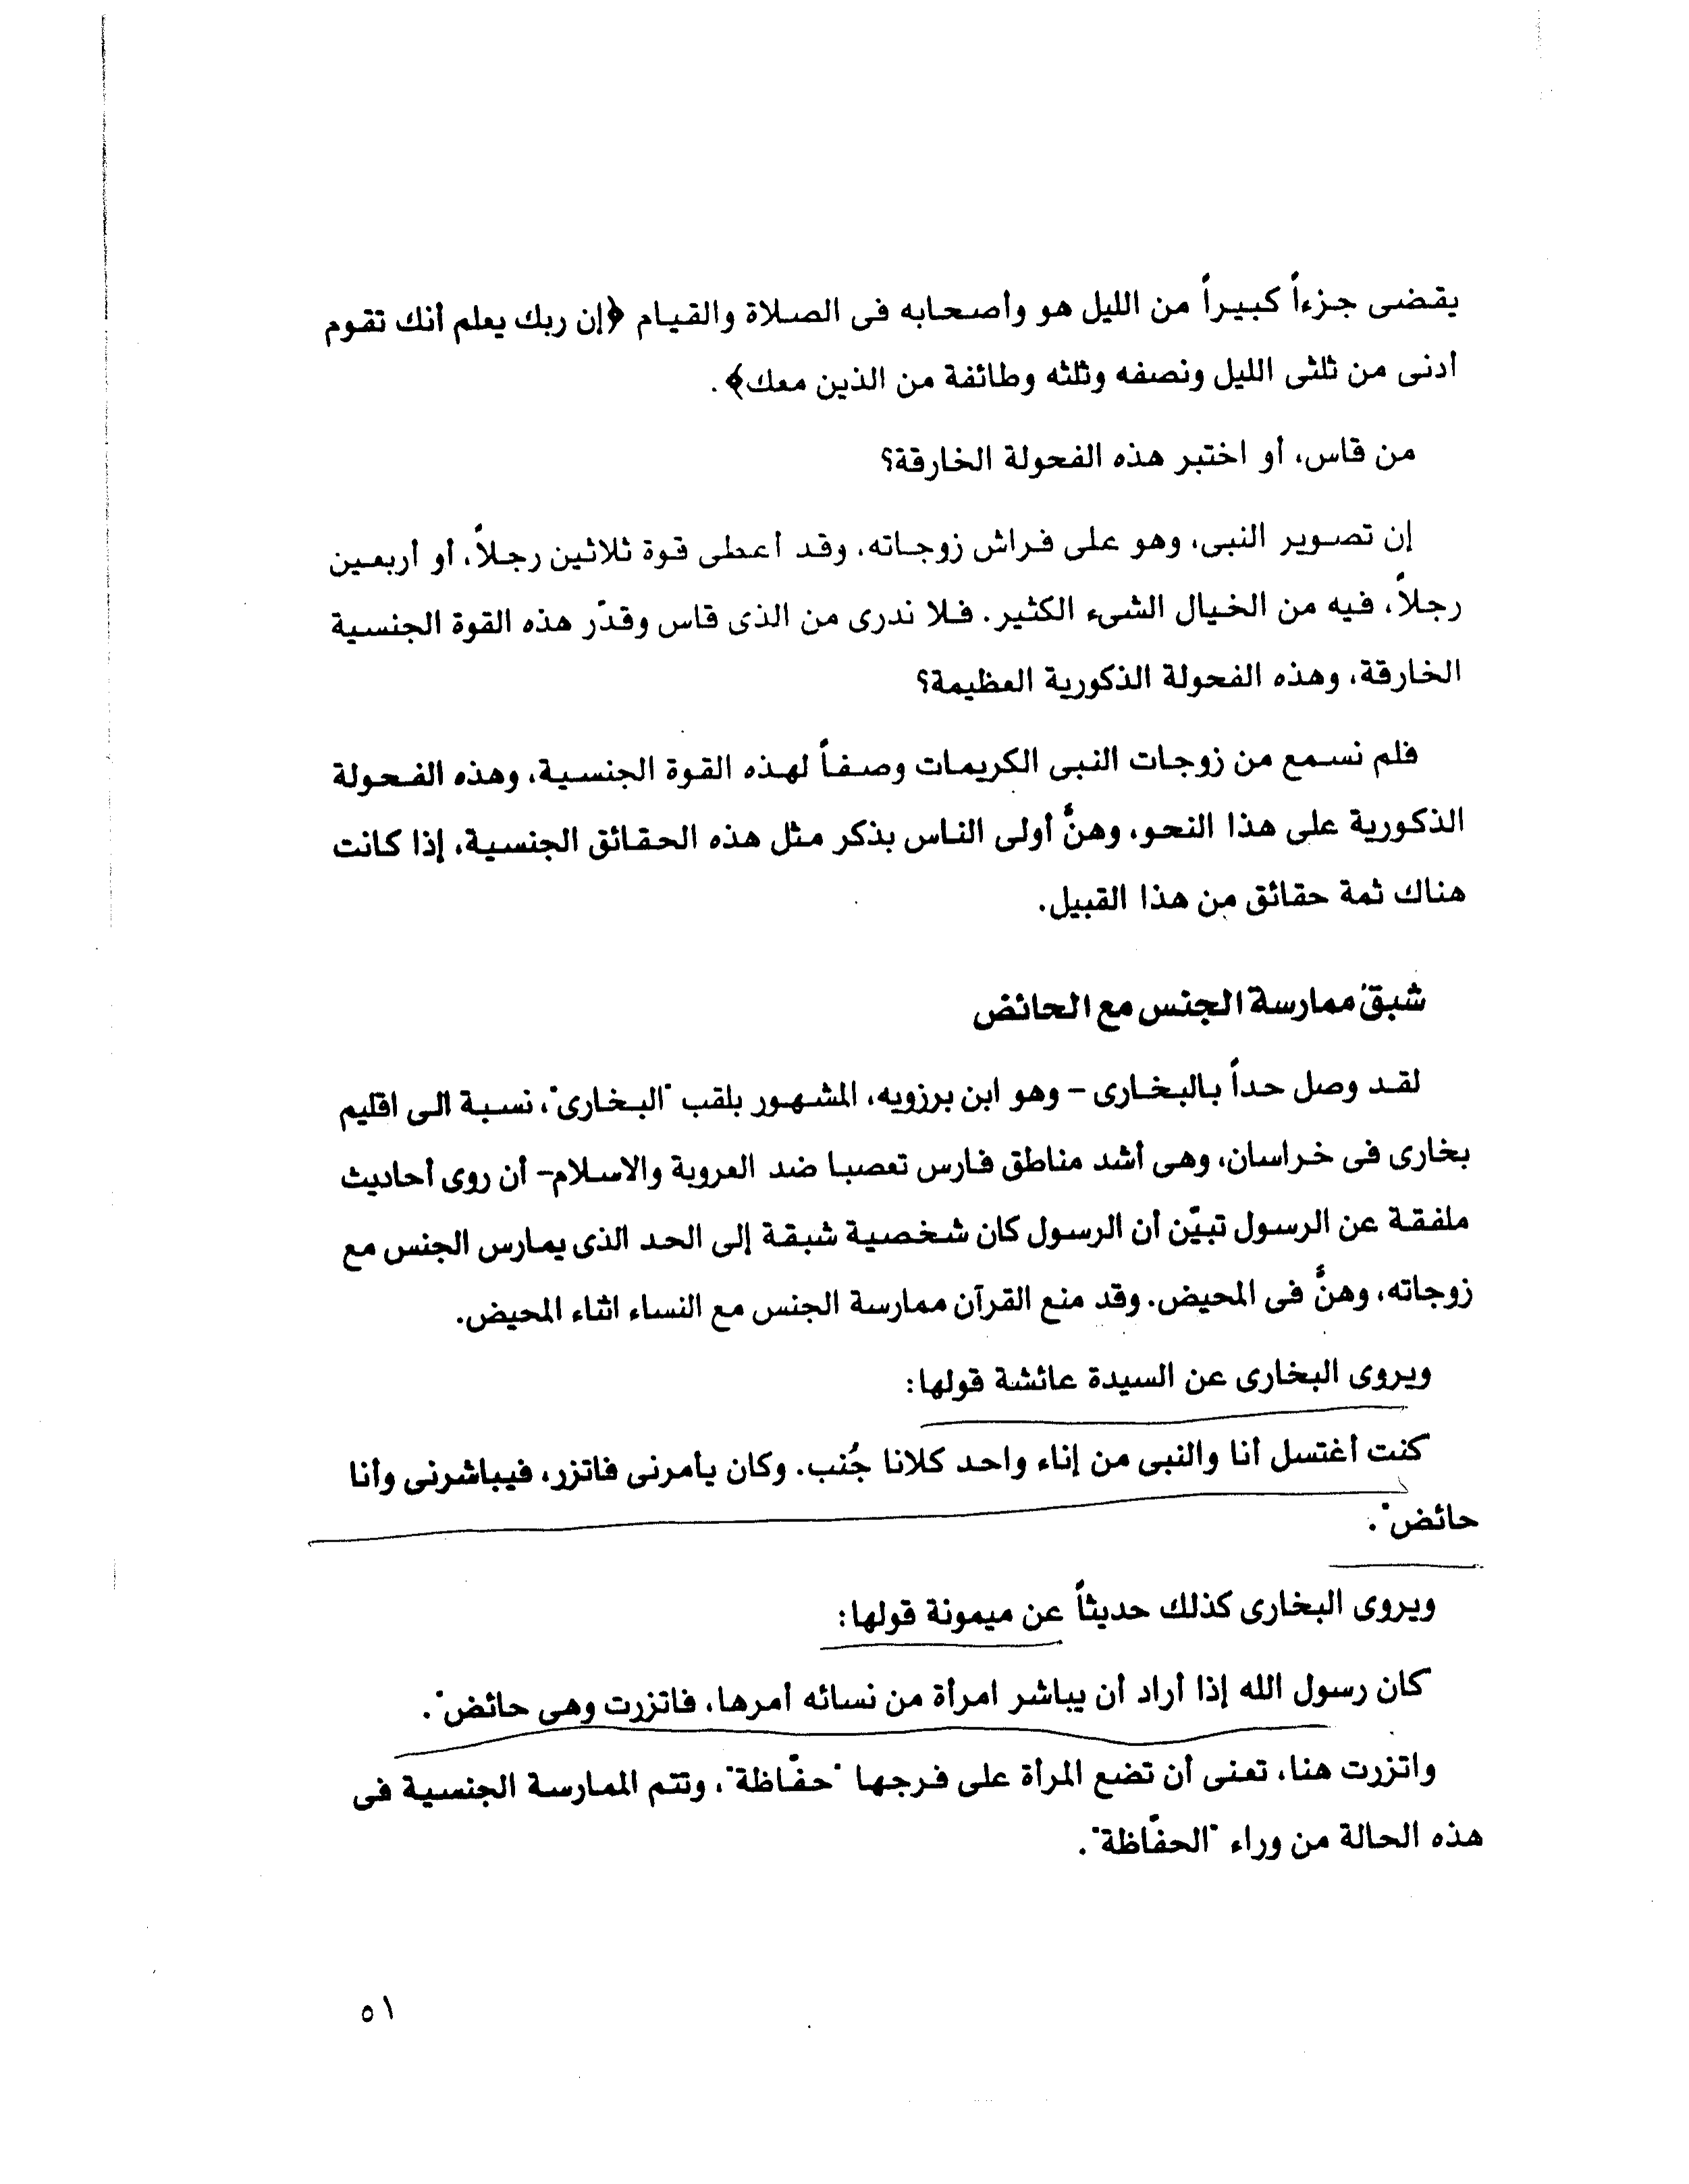 يقضى جزءاً كبيراً من الليل هو وأصحابه فى الصلاة والقيام ﴿إن ربك يعلم أنك تقوم
أدنى من ثلثى الليل ونصفه وثلثه وطائفة من الذين معك﴾.
من قاس، أو اختبر هذه الفحولة الخارقة؟
إن تصوير النبى، وهو على فراش زوجاته، وقد أعطى قوة ثلاثين رجلاً، أو أربعين
رجلاً، فيه من الخيال الشىء الكثير. فلا ندرى من الذى قاس وقدّر هذه القوة الجنسية
الخارقة، وهذه الفحولة الذكورية العظيمة؟
فلم نسمع من زوجات النبى الكريمات وصفاً لهذه القوة الجنسية، وهذه الفحولة
الذكورية على هذا النحو، وهنَّ أولى الناس بذكر مثل هذه الحقائق الجنسية، إذا كانت
هناك ثمة حقائق من هذا القبيل.
شبق ممارسة الجنس مع الحائض
لقد وصل حداً بالبخارى – وهو ابن برزويه، المشهور بلقب "البخارى"، نسبة الى اقليم
بخارى فى خراسان، وهى أشد مناطق فارس تعصبا ضد العروبة والاسلام– أن روى أحاديث
ملفقة عن الرسول تبيّن أن الرسول كان شخصية شبقة إلى الحد الذى يمارس الجنس مع
زوجاته، وهنَّ فى المحيض. وقد منع القرآن ممارسة الجنس مع النساء اثناء المحيض.
ويروى البخارى عن السيدة عائشة قولها:
كنت أغتسل أنا والنبى من إناء واحد كلانا جُنب. وكان يأمرنى فاتزر، فيباشرنى وأنا
حائض".
ويروى البخارى كذلك حديثاً عن ميمونة قولها:
كان رسول الله إذا أراد أن يباشر امرأة من نسائه أمرها، فاتزرت وهى حائض".
واتزرت هنا، تعنى أن تضع المرأة على فرجها "حفّاظة"، وتتم الممارسة الجنسية فى
هذه الحالة من وراء "الحفّاظة".
٥١